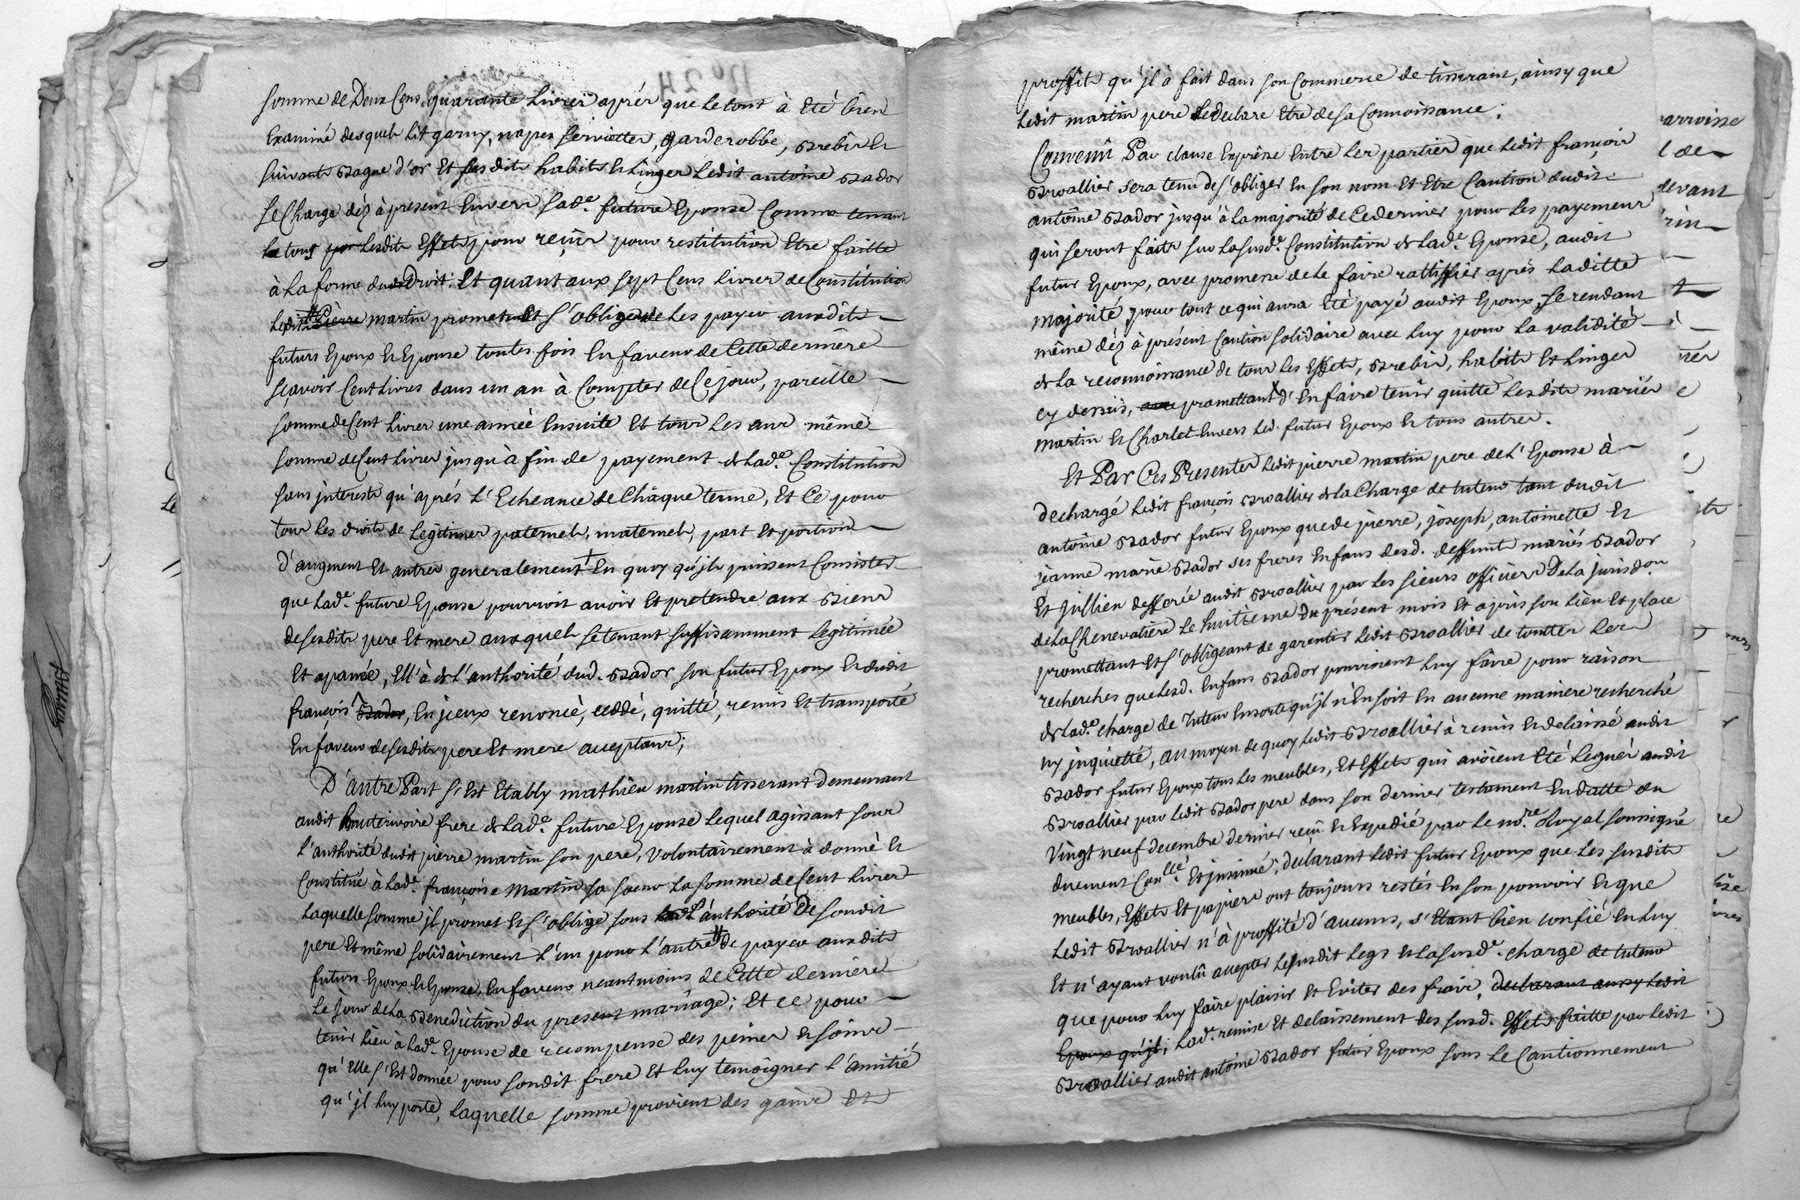 N° 24
somme de Deux Cens quarante Livres aprés que le tout à eté bien
Examiné desquels lit garny, napes serviettes, garderobbe, brebis et
suivants bague d'or Et susdits habits et linges Ledit antoine Bador
se Charge dés à present Envers lad.e future Epouse Comme tenant
le tout pour lesdits Effets pour reçûs pour restitution Etre faitte
à La forme du Droit: Et quant aux sept Cens livres de Constitution
Ledit Pierre martin promet et s'oblige de Les payer ausdits
futurs Epoux et Epouse toutes fois En faveur de Cette derniere
sçavoir Cent livres dans un an à Compter de Ce jour, pareille
somme de Cent livres une année Ensuite Et tous Les ans même
somme de Cent livres jusqu'à fin de payement de lad.e Constitution
sans interests qu'aprés L'Echeance de Chaque terme, Et Ce pour
tous les droits de Legitimes paternels, maternels, part Et portion
d'augment Et autres generalement En quoy qu'jls puissent Consister
que Lad.e future Epouse pourroit avoir Et pretendre aux Biens
desesdits pere Et mere auxquels se tenant suffisamment Legitimée
Et apanée, Ell'à de L'authorité dud. Bador son futur Epoux Et dudit
françois Bador, En jceux renoncé, ceddé, quitté, remis Et transporté
En faveur desesdits pere Et mere acceptans;
D'autre Part S'Est Etably mathieu martin tisserant demeurant
audit frere de Lad.e future Epouse Lequel agissant sous
L'authorité dudit pierre martin son pere, Volontairement à donné Et
Constitué à Lad.e françoise Martin sa soeur La somme de Cent livres
Laquelle somme jl promet Et s'oblige sous L'authorité de sondit
pere Et même solidairement L'un pour L'autre de payer ausdits
futurs Epoux et Epouse, En faveur neantmoins de Cette derniere
Le jour de La Benediction du present mariage; Et ce pour
tenir Lieu à Lad.e Epouse de recompense des peines et soins
qu'Elle s'Est donnée pour sondit frere Et Luy temoigner L'amitié
qu'jl luy porte, Laquelle somme provient des gains Et
proffits qu'jl à fait dans son Commerce de tisserant, ainsy que
Ledit martin pere Le declare Etre de sa Connoissance;
Convenû Par clause Expresse Entre Les parties que Ledit françois
Brvallier sera tenu de s'obliger En son nom Et Etre Caution dudit
antoine Bador jusqu'à La majorité de Ce dernier pour Les payemens
qui seront faits sur La susd.e Constitution de Lad.e Epouse, audit
futur Epoux, avec promesse de Le faire rattiffier aprés Laditte
majorité pour tout ce qui aura Eté payé audit Epoux, se rendant
même dés à présent Caution solidaire avec Luy pour La validité
de La reconnoissance de tous Les Effets, Brebis, habits Et Linges
cy dessus, promettant d'En faire tenir quitte Lesdits mariés
Martin Et Charlet Envers Led. futur Epoux Et tous autres.
Et Par Ces Presentes Ledit pierre martin pere de L'Epouse à
dechargé Ledit françois Brvallier de La Charge de tuteur tant dudit
antoine Bador futur Epoux que de pierre, joseph, antoinette Et
jeanne marie Bador ses freres Enfans desd. deffunts mariés Bador
Et jullien defferée audit Brvallier par Les sieurs officiers De La Jurisd.on
de La Chenevatiere Le huitieme du présent mois Et aprés son Lieu Et place
promettant Et s'obligeant de garentir Ledit Brvallier de touttes Les
recherches que Lesd. Enfans Bador pourroient Luy faire pour raison
de Lad.e charge de Tuteur Ensorte qu'jl n'En soit En aucune maniere recherché
ny jnquietté, au moyen de quoy Ledit Brvallier à remis Et delaissé audit
Bador futur Epoux tous Les meubles, Et Effets qui avoient Eté Legués audit
Brvallier par Ledit Bador pere dans son dernier testament En datte du
Vingt neuf decembre dernier reçû Et Expedié par Le no.re Royal soussigné
duement Con.llé Et jnsinué; Declarant Ledit futur Epoux que Les susdits
meubles, Effets Et papiers ont toujours restés En son pouvoir Et que
Ledit Brvallier n'à proffité d'aucuns, s'Etant bien confié En Luy
Et n'ayant voulû accepter Le susdit Legs Et La susd.e charge de tuteur
que pour Luy faire plaisir Et Eviter des frais, declarant aussy Ledit
Epoux qu'jls; Lad.e remise Et delaissement des susd. Effets faitte par Ledit
Brvallier audit antoine Bador futur Epoux sous Le Cautionnement